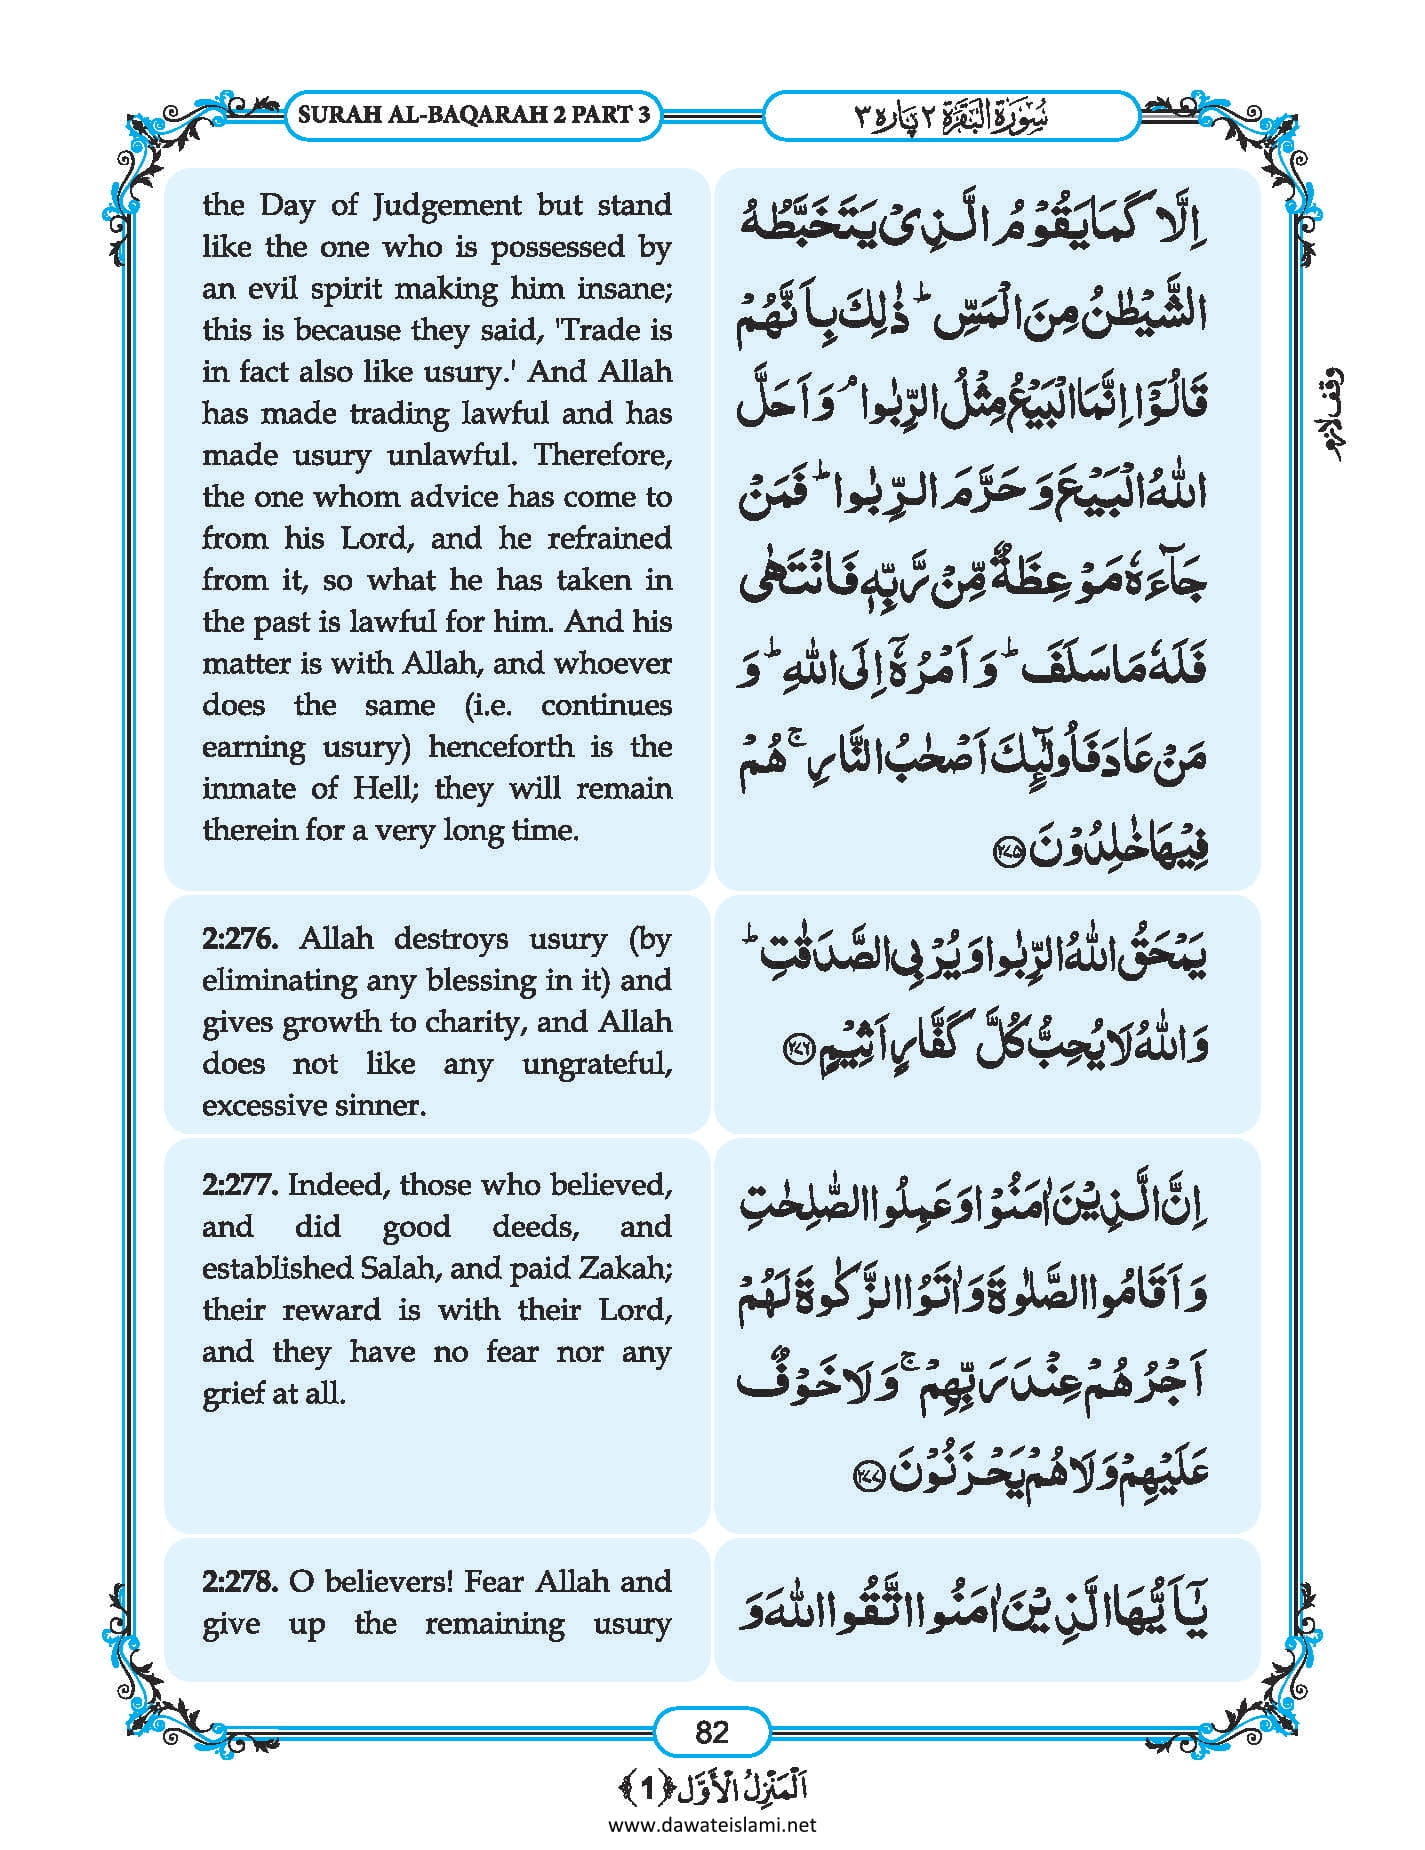 SURAH AL-BAQARAH 2 PART 3
سُوۡرَةُ الۡبَقَرَة ۲ پارہ ۳
the Day of Judgement but stand
like the one who is possessed by
an evil spirit making him insane;
this is because they said, 'Trade is
in fact also like usury.' And Allah
has made trading lawful and has
made usury unlawful. Therefore,
the one whom advice has come to
from his Lord, and he refrained
from it, so what he has taken in
the past is lawful for him. And his
matter is with Allah, and whoever
does the same (i.e. continues
earning usury) henceforth is the
inmate of Hell; they will remain
therein for a very long time.
اِلَّا کَمَا یَقُوۡمُ الَّذِیۡ یَتَخَبَّطُهُ
الشَّیۡطٰنُ مِنَ الۡمَسِّ ؕ ذٰلِكَ بِاَنَّهُمۡ
قَالُوۡۤا اِنَّمَا الۡبَیۡعُ مِثۡلُ الرِّبٰوا ۘ وَ اَحَلَّ
اللّٰهُ الۡبَیۡعَ وَ حَرَّمَ الرِّبٰوا ؕ فَمَنۡ
جَآءَهٗ مَوۡعِظَةٌ مِّنۡ رَّبِّهٖ فَانۡتَهٰی
فَلَهٗ مَا سَلَفَ ؕ وَ اَمۡرُهٗۤ اِلَی اللّٰهِ ؕ وَ
مَنۡ عَادَ فَاُولٰٓئِكَ اَصۡحٰبُ النَّارِ ۚ هُمۡ
فِیۡهَا خٰلِدُوۡنَ ﴿۲۷۵﴾
وقف لازم
2:276. Allah destroys usury (by
eliminating any blessing in it) and
gives growth to charity, and Allah
does not like any ungrateful,
excessive sinner.
یَمۡحَقُ اللّٰهُ الرِّبٰوا وَ یُرۡبِی الصَّدَقٰتِ ؕ
وَ اللّٰهُ لَا یُحِبُّ کُلَّ کَفَّارٍ اَثِیۡمٍ ﴿۲۷۶﴾
2:277. Indeed, those who believed,
and did good deeds, and
established Salah, and paid Zakah;
their reward is with their Lord,
and they have no fear nor any
grief at all.
اِنَّ الَّذِیۡنَ اٰمَنُوۡا وَ عَمِلُوا الصّٰلِحٰتِ
وَ اَقَامُوا الصَّلٰوةَ وَ اٰتَوُا الزَّکٰوةَ لَهُمۡ
اَجۡرُهُمۡ عِنۡدَ رَبِّهِمۡ ۚ وَ لَا خَوۡفٌ
عَلَیۡهِمۡ وَ لَا هُمۡ یَحۡزَنُوۡنَ ﴿۲۷۷﴾
2:278. O believers! Fear Allah and
give up the remaining usury
یٰۤاَیُّهَا الَّذِیۡنَ اٰمَنُوا اتَّقُوا اللّٰهَ وَ
82
اَلۡمَنۡزِلُ الۡاَوَّل ﴿1﴾
www.dawateislami.net